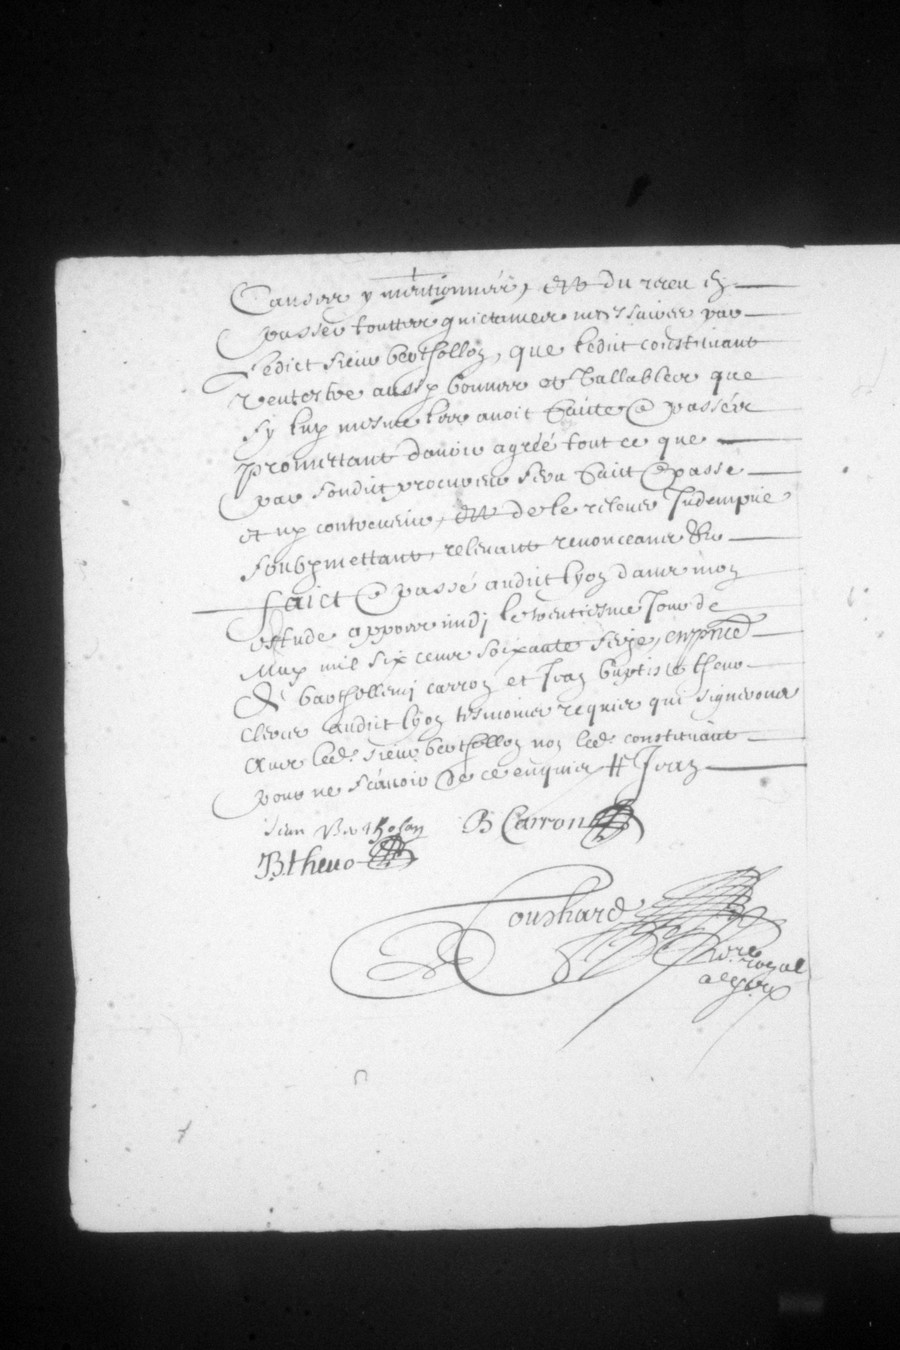 Causes y mentionnées, et du receu en
passer touttes quictances necessaires par
ledict sieur berthollon, que ledict constituant
veut estre aussy bonnes et vallables que
sy luy mesme les avoit faites & passées
promettant d'avoir agréé tout ce que
par sondict procureur sera faict & passé
et ny contrevenir, et de le relever Indempne
soubzmettant, relevant renonceant &c
faict & passé audict lyon dans mon
estude appres midj le vintiesme Jour de
May mil six cens soixante seize, en p̄nce
De barthellemj carron et Jean baptiste theno
clercs audict lyon tesmoins requis qui signeront
avec led. sieur berthollon non led. constituant
pour ne sçavoir de ce enquis # Jean
Jean Berthollon B Carron
B. theno
Couchard
no.re
royal
a lyon